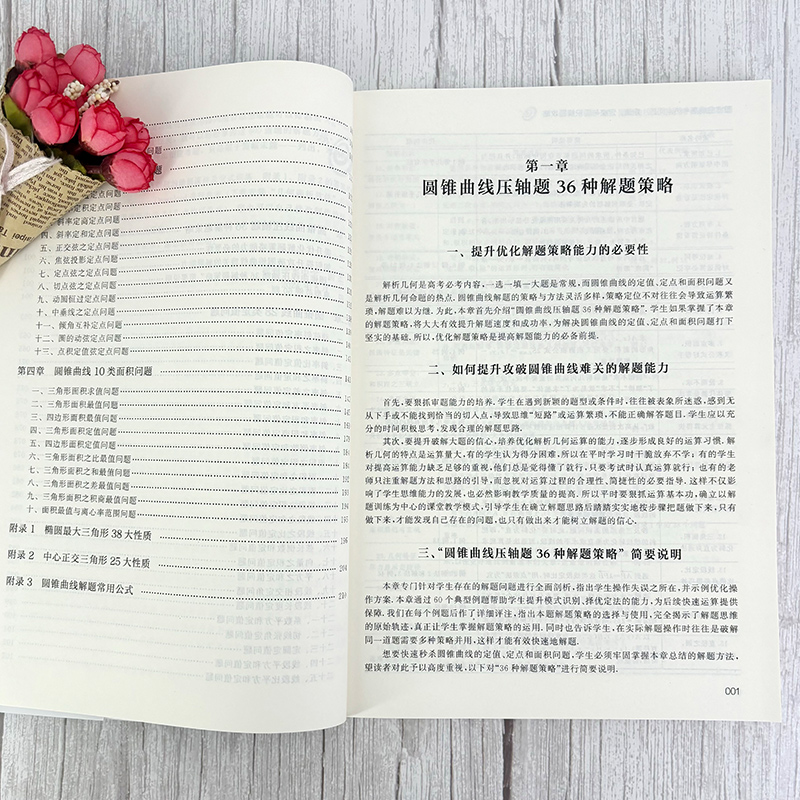 问题
问题
一、斜率定定点问题
二、斜率定积定点问题
三、斜率定商定点问题
四、斜率定和定点问题
五、正交弦之定点问题
六、焦弦投影定点问题
七、定点弦之定点问题
八、切点弦之定点问题
九、动圆恒过定点问题
十、中垂线之定点问题
十一、倾角互补定点问题
十二、圆的动弦定点问题
十三、点积定值弦定点问题
第四章 圆锥曲线10类面积问题
一、三角形面积求值问题
二、三角形面积最值问题
三、四边形面积最值问题
四、三角形面积定值问题
五、四边形面积定值问题
六、三角形面积之比最值问题
七、三角形面积之和最值问题
八、三角形面积之差最值问题
九、三角形面积之积商最值问题
十、面积最值与离心率范围问题
附录1 椭圆最大三角形38大性质
附录2 中心正交三角形25大性质 204
附录3 圆锥曲线解题常用公式 210
第一章
圆锥曲线压轴题36种解题策略
一、提升优化解题策略能力的必要性
解析几何是高考必考内容,一选一填一大题是常规,而圆锥曲线的定值、定点和面积问题又
是解析几何命题的热点.圆锥曲线解题的策略与方法灵活多样,策略定位不对往往会导致运算繁
琐,解题难以为继.为此,本章首先介绍“圆锥曲线压轴题36种解题策略”.学生如果掌握了本章
的解题策略,将大大有效提升解题速度和成功率,为解决圆锥曲线的定值、定点和面积问题打下
坚实的基础.所以,优化解题策略是提高解题能力的必备前提.
二、如何提升攻破圆锥曲线难关的解题能力
首先,要狠抓审题能力的培养.学生在遇到新颖的题型或条件时,往往被表象所迷惑,感到无
从下手或不能找到恰当的切入点,导致思维“短路”或运算繁琐,不能正确解答题目.学生应以充
分的时间积极思考,发现合理的解题思路.
其次,要提升破解大题的信心,培养优化解析几何运算的能力,逐步形成良好的运算习惯.解
析几何的特点是运算量大,有的学生认为得分困难,所以在平时学习时干脆放弃不学;有的学生
对提高运算能力缺乏足够的重视,他们总是觉得懂了就行,只要考试时认真运算就行;也有的老
师只注重解题方法和思路的引导,而忽视对运算过程的合理性、简捷性的必要指导.这样不仅影
响了学生思维能力的发展,也必然影响教学质量的提高.所以平时要狠抓运算基本功,确立以解
题训练为中心的课堂教学模式,引导学生在确立解题思路后踏踏实实地按步骤把题做下来,只有
做下来,才能发现自己存在的问题,也只有做出来才能树立解题的信心.
三、“圆锥曲线压轴题36种解题策略”简要说明
本章专门针对学生存在的解题问题进行全面剖析,指出学生操作失误之所在,并示例优化操
作方案.本章通过60个典型例题帮助学生提升模式识别、择优定法的能力,为后续快速运算提供
保障.我们在每个例题后作了详细评注,指出本题解题策略的选择与使用,完全揭示了解题思维
的原始轨迹,真正让学生掌握解题策略的运用.同时也告诉学生,在实际解题操作时往往是破解
同一道题需要多种策略并用,这样才能有效快速地解题.
想要快速秒杀圆锥曲线的定值、定点和面积问题,学生必须牢固掌握本章总结的解题方法,
望读者对此予以高度重视,以下对“36种解题策略”进行简要说明.
001